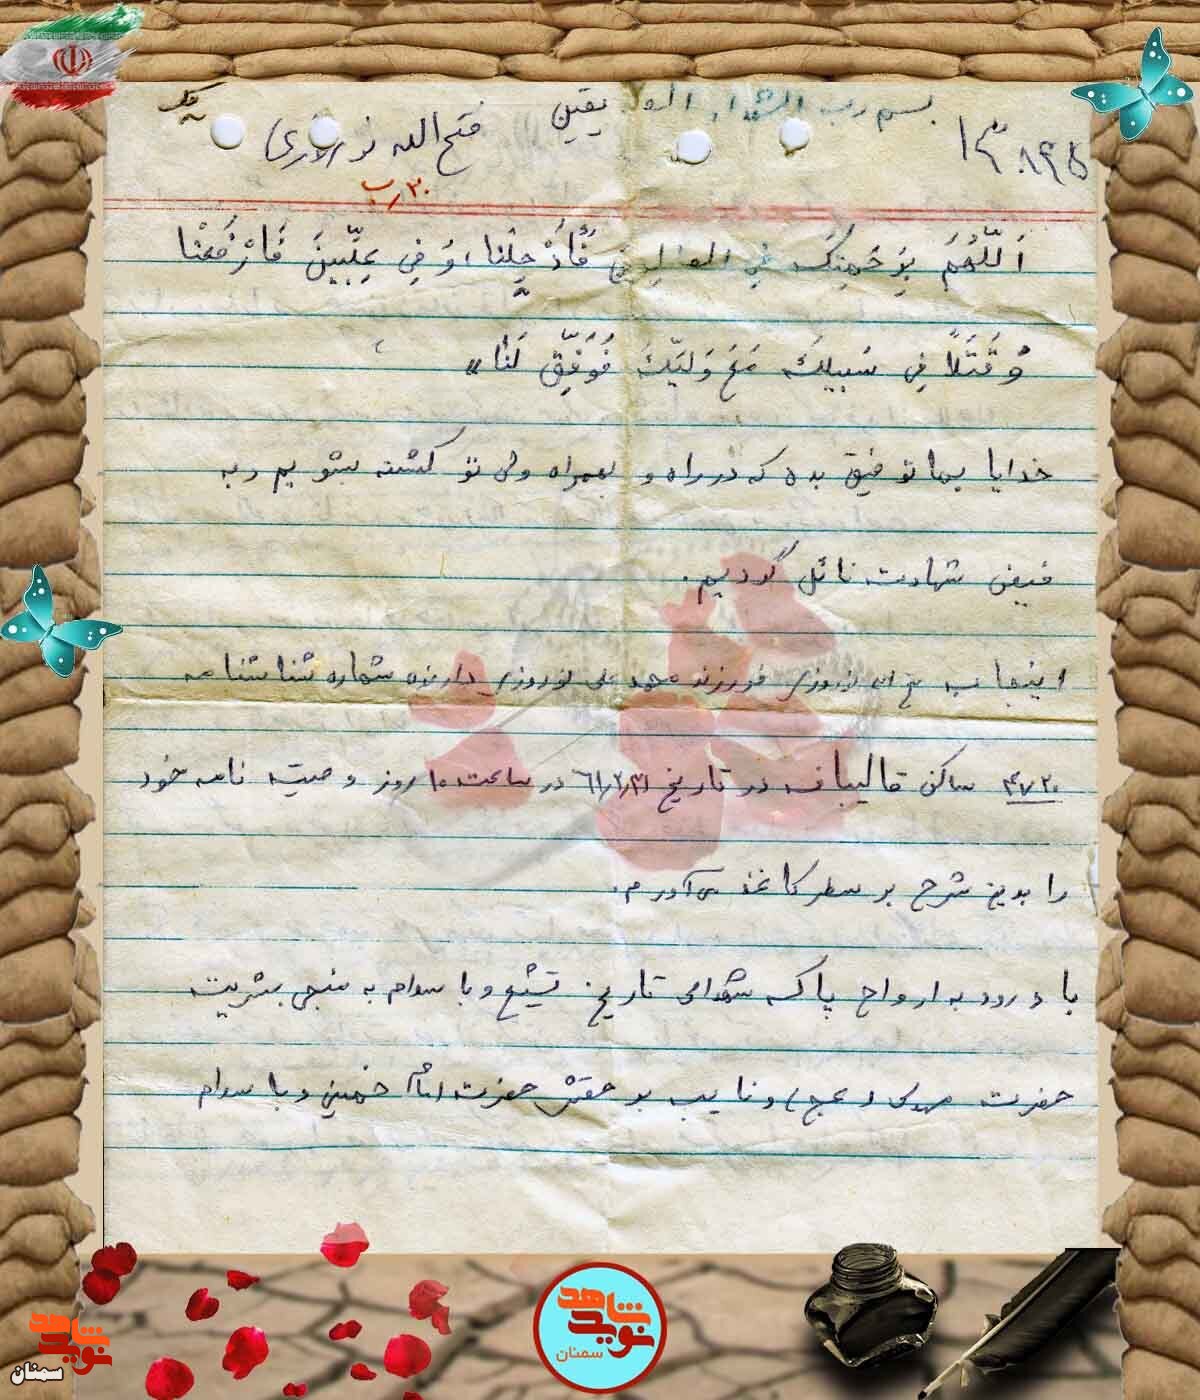 بسم رب الشهداء یقین
فتح الله نوروزی
۳۰ ب
اَللّهُمَّ بِرَحْمَتِکَ فِی الصالِحینَ فَأَدْخِلْنا وَ فِی عِلِّیینَ فَارْفَعْنا
وَ قَتْلاً فِی سَبیلِکَ مَعَ وَلِیِّکَ فَوَفِّق لَنا»
خدایا بما توفیق بده که در راه و بهمراه ولی تو کشته بشویم و به
فیض شهادت نائل گردیم.
اینجانب فتح اله نوروزی فورزند محمد علی نوروزی دارنده شماره شناشنامه
ساکن قالیباف در تاریخ ۶۱/۲/۳۱ در ساعت ۱۰ روز وصیت نامه خود
را بدین شرح بر سطر کاغذ می آورم.
با درود به ارواح پاک شهدای تاریخ تشیع و با سلام به منجی بشریت
حضرت مهدی (عج) و نایب بر حقش حضرت امام خمینی و با سلام
شاهد
نوید
سمنان
شاهد
نوید
سمنان